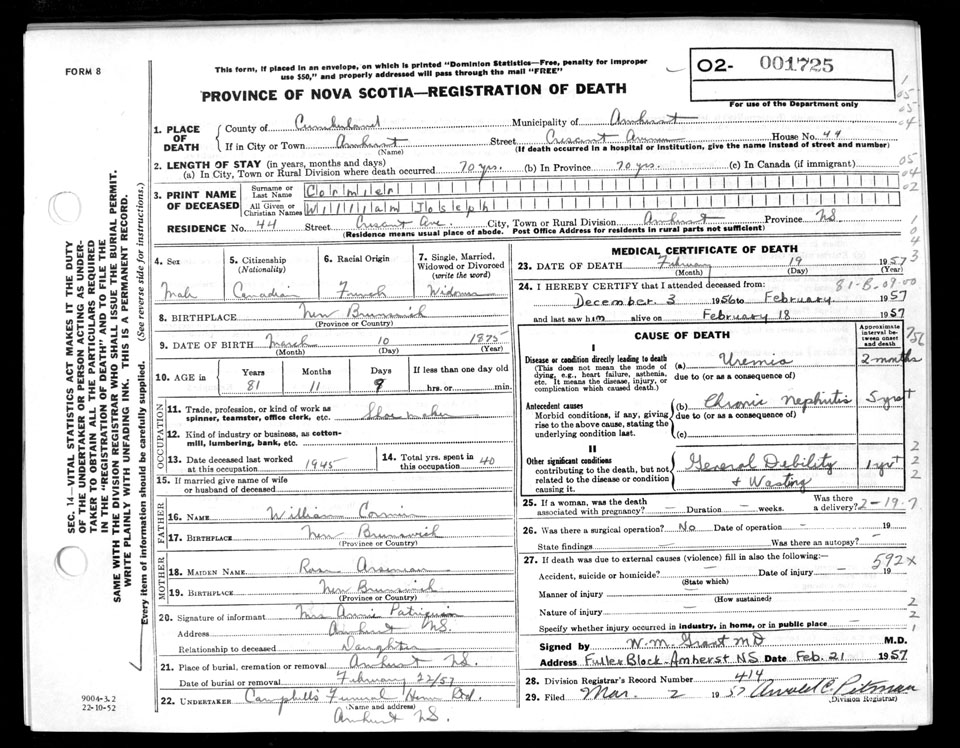 FORM 8
This form, if placed in an envelope, on which is printed "Dominion Statistics—Free, penalty for improper
use $50," and properly addressed will pass through the mail "FREE"
O2- 001725
For use of the Department only
PROVINCE OF NOVA SCOTIA—REGISTRATION OF DEATH
1. PLACE OF DEATH
County of Cumberland Municipality of Amherst
If in City or Town Amherst Street Crescent Avenue House No. 44
(Name) (If death occurred in a hospital or institution, give the name instead of street and number)
2. LENGTH OF STAY (in years, months and days)
(a) In City, Town or Rural Division where death occurred 70 yrs. (b) In Province 70 yrs. (c) In Canada (if immigrant)
3. PRINT NAME OF DECEASED
Surname or Last Name Cormier
All Given or Christian Names William Joseph
RESIDENCE No. 44 Street Crescent Ave. City, Town or Rural Division Amherst Province NS
(Residence means usual place of abode. Post Office Address for residents in rural parts not sufficient)
4. Sex
Male
5. Citizenship (Nationality)
Canadian
6. Racial Origin
French
7. Single, Married, Widowed or Divorced (write the word)
Widower
8. BIRTHPLACE New Brunswick
(Province or Country)
9. DATE OF BIRTH March 10 1875
(Month) (Day) (Year)
10. AGE in
Years Months Days If less than one day old
81 11 9 hrs. or min.
OCCUPATION
11. Trade, profession, or kind of work as
spinner, teamster, office clerk, etc. Shoe maker
12. Kind of industry or business, as cotton-
mill, lumbering, bank, etc.
13. Date deceased last worked
at this occupation 1945
14. Total yrs. spent in
this occupation 40
15. If married give name of wife
or husband of deceased
FATHER
16. NAME William Cormier
17. BIRTHPLACE New Brunswick
(Province or Country)
MOTHER
18. MAIDEN NAME Rose Arseneau
19. BIRTHPLACE New Brunswick
(Province or Country)
20. Signature of informant Mrs Annie Patriquin
Address Amherst NS.
Relationship to deceased Daughter
21. Place of burial, cremation or removal Amherst NS.
Date of burial or removal February 22/57
22. UNDERTAKER Campbells Funeral Home Ltd.
(Name and address)
Amherst NS.
MEDICAL CERTIFICATE OF DEATH
23. DATE OF DEATH February 19 1957
(Month) (Day) (Year)
24. I HEREBY CERTIFY that I attended deceased from:
81-B-09-00
December 3 1956 to February 1957
and last saw him alive on February 18 1957
CAUSE OF DEATH
Approximate interval between onset and death
I
Disease or condition directly leading to death
(This does not mean the mode of
dying, e.g., heart failure, asthenia,
etc. It means the disease, injury, or
complication which caused death.)
(a) Uremia 2 months
due to (or as a consequence of)
Antecedent causes
Morbid conditions, if any, giving
rise to the above cause, stating the
underlying condition last.
(b) Chronic Nephritis 5 yrs +
due to (or as a consequence of)
(c)
II
Other significant conditions
contributing to the death, but not
related to the disease or condition
causing it.
General Debility 1 yr +
+ Wasting
25. If a woman, was the death
associated with pregnancy? — Duration — weeks. Was there
a delivery?
2-19-7
26. Was there a surgical operation? No Date of operation - 19
State findings — Was there an autopsy? -
27. If death was due to external causes (violence) fill in also the following:—
592x
Accident, suicide or homicide? — Date of injury — 19
(State which)
Manner of injury
(How sustained)
Nature of injury —
Specify whether injury occurred in industry, in home, or in public place —
Signed by W.M. Grant MD M.D.
Address Fuller Block-Amherst NS Date Feb. 21 1957
28. Division Registrar's Record Number 414
29. Filed Mar. 2 1957 Arnold C. Pitman
(Division Registrar)
SEC. 14—VITAL STATISTICS ACT MAKES IT THE DUTY
OF THE UNDERTAKER OR PERSON ACTING AS UNDER-
TAKER TO OBTAIN ALL THE PARTICULARS REQUIRED
IN THE "REGISTRATION OF DEATH" AND TO FILE THE
SAME WITH THE DIVISION REGISTRAR WHO SHALL ISSUE THE BURIAL PERMIT.
WRITE PLAINLY WITH UNFADING INK. THIS IS A PERMANENT RECORD.
Every item of information should be carefully supplied. (See reverse side for instructions.)
9004-3.2
22-10-52